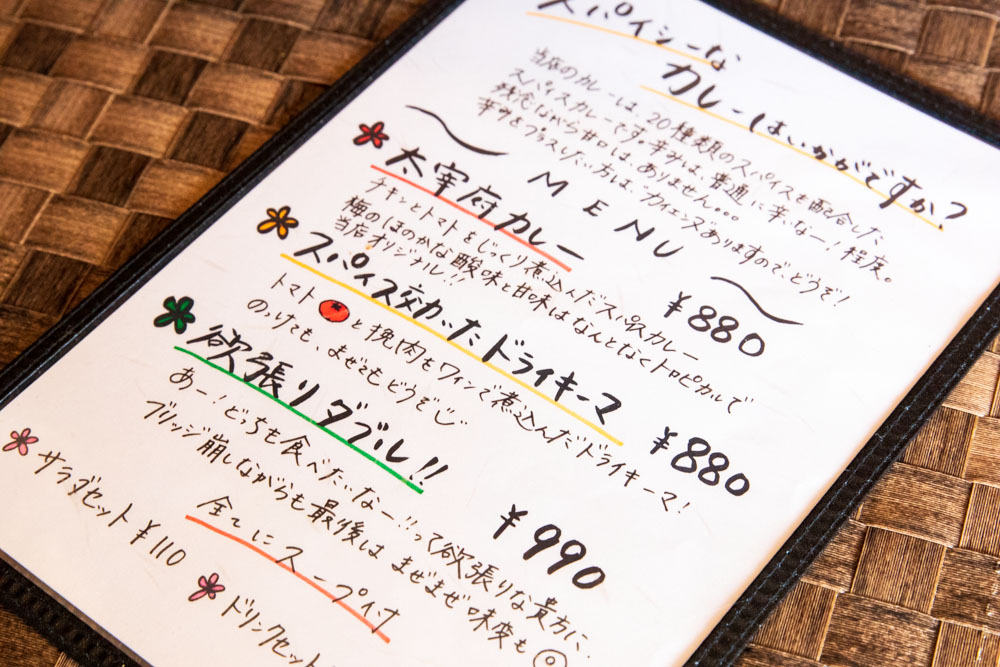 スパイシーな
カレーはいかがですか？
当店のカレーは、20種類のスパイスを配合した
スパイスカレーです。辛みは、普通に辛いなー！程度。
残念ながら甘口は、ありません。。。
辛みをプラスしたい方は、カイエンヌありますのでどうぞ！
MENU
太宰府カレー ¥880
チキンとトマトをじっくり煮込んだスパイスカレー
梅のほのかな酸味と甘味はなんとなくトロピカルで
当店オリジナル!!
スパイス効いたドライキーマ ¥880
トマトと挽肉をワインで煮込んだドライキーマ！
のっけても、まぜてもどうぞ
欲張りダブル!! ¥990
あー！どっちも食べたいなー!!って欲張りな貴方に。
ブリッジ崩しながらも最後はまぜまぜ味変も◎
全てにスープ付
サラダセット ¥110
ドリンクセット